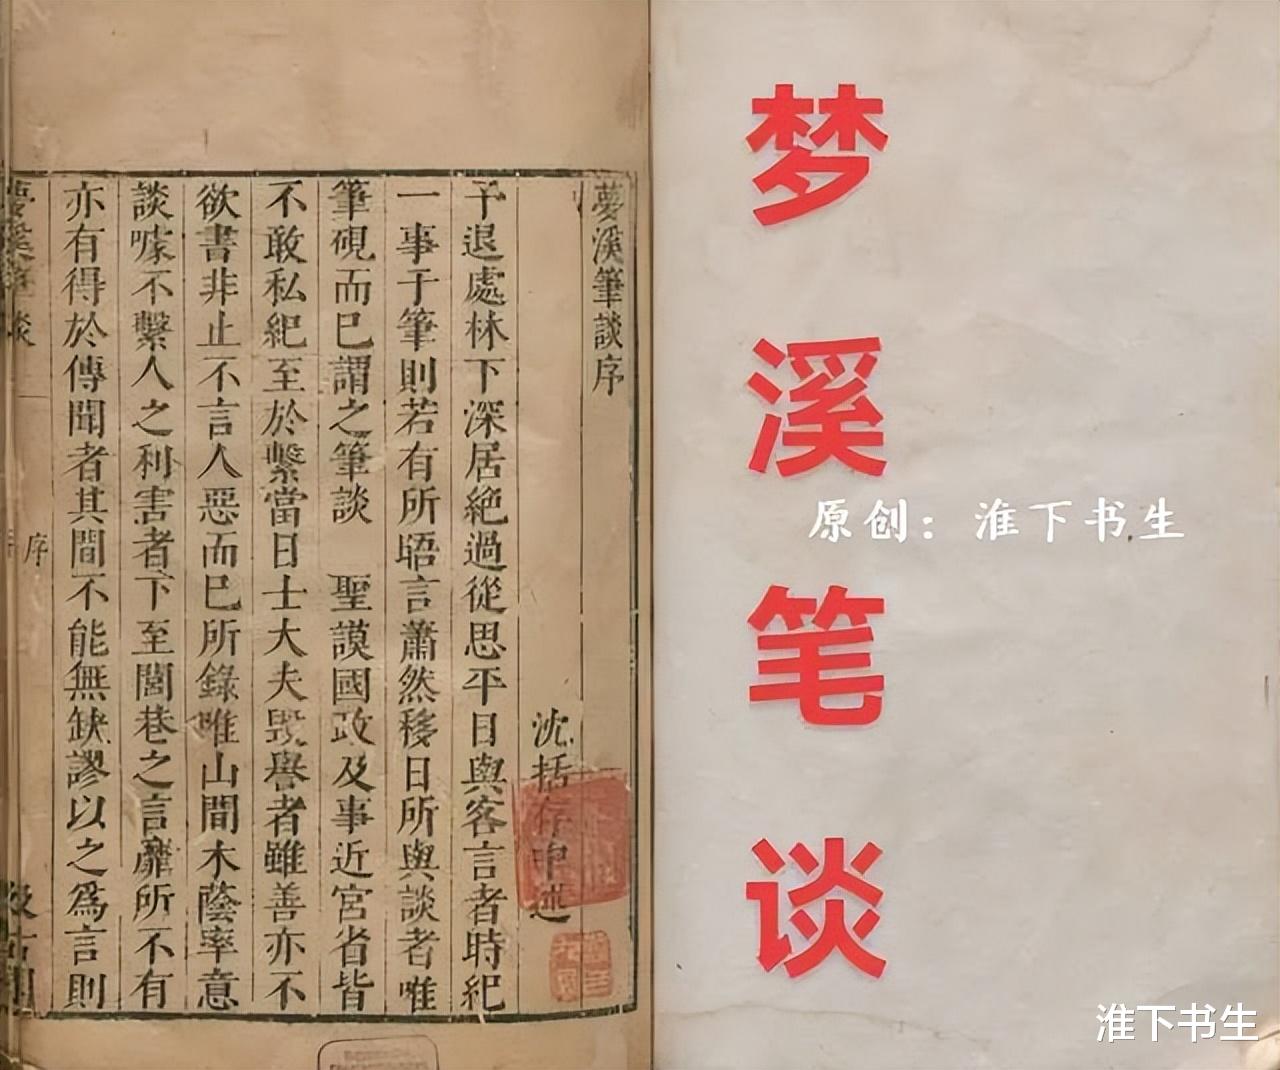 夢溪筆談序
沈括存中述
予退處林下深居絶過從思平日與客言者時紀
一事于筆則若有所晤言蕭然移日所與談者唯
筆硯而巳謂之筆談 聖謨國政及事近宮省皆
不敢私紀至於繫當日士大夫毀譽者雖善亦不
欲書非止不言人惡而巳所錄唯山間木蔭率意
談噱不繫人之利害者下至閭巷之言靡所不有
亦有得於傳聞者其間不能無缺謬以之爲言則
夢溪筆談
序
汲古閣
梦溪笔谈
原创：淮下书生
淮下书生